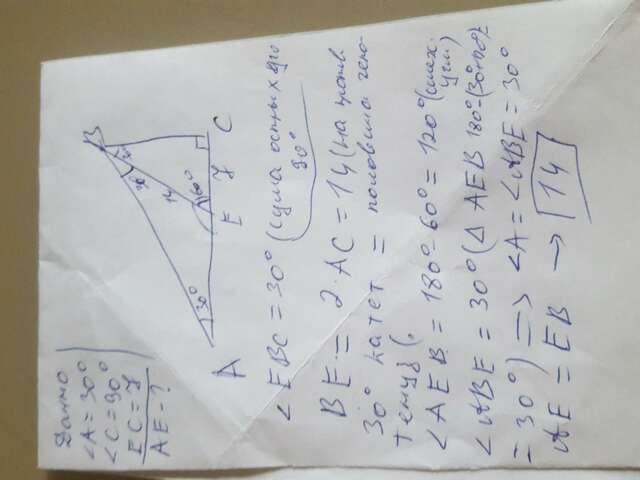 Дано
∠A = 30°
∠C = 90°
EC = 7
AE - ?
B
30°
30°
14
60°
30°
A
E
7
C
∠EBC = 30° (сума острых угло
90°
BE = 2·AC = 14 (на против
30° катет = половина гипо-
темуз(.
∠AEB = 180° - 60° = 120° (смеж.
угл)
∠ABE = 30° (△ AEB 180°-(30°+120°)
= 30°) => ∠A = ∠ABE = 30°
AE = EB → 14